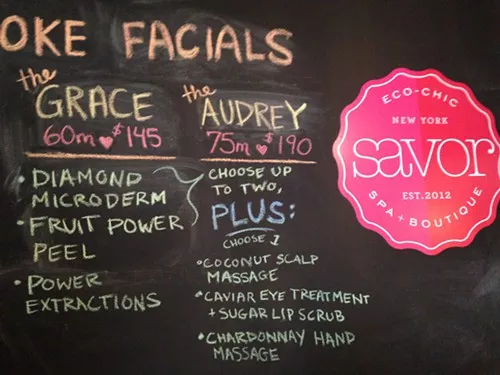 OKE FACIALS
the
GRACE
60m ♥ $145
• DIAMOND
MICRODERM
• FRUIT POWER
PEEL
• POWER
EXTRACTIONS
the
AUDREY
75m ♥ $190
CHOOSE UP
TO TWO,
PLUS:
CHOOSE 1
• COCONUT SCALP
MASSAGE
• CAVIAR EYE TREATMENT
+ SUGAR LIP SCRUB
• CHARDONNAY HAND
MASSAGE
ECO-CHIC
NEW YORK
savor
EST. 2012
SPA + BOUTIQUE